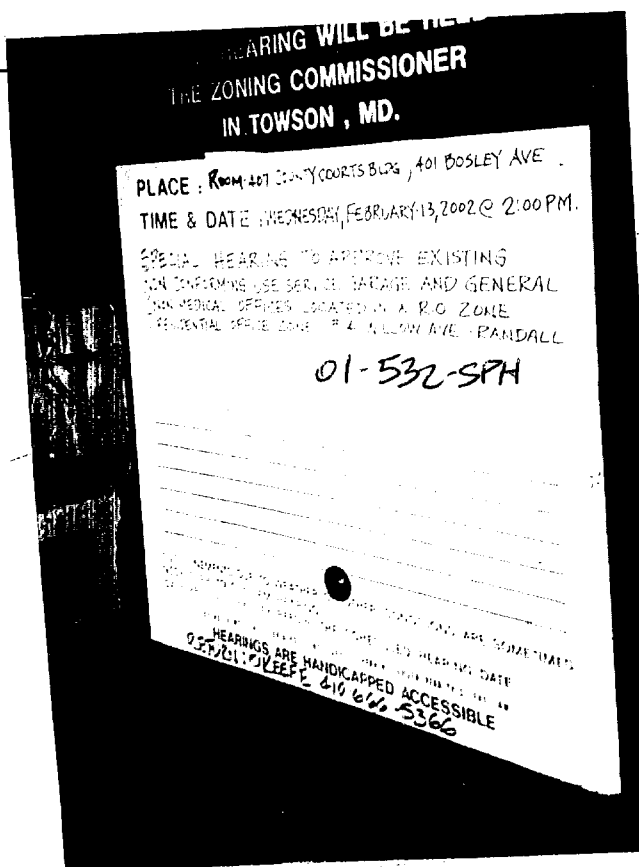 HEARING WILL BE HELD
THE ZONING COMMISSIONER
IN TOWSON , MD.
PLACE : ROOM 407 COUNTY COURTS BLDG , 401 BOSLEY AVE .
TIME & DATE : WEDNESDAY, FEBRUARY 13, 2002 @ 2:00 PM.
SPECIAL HEARING TO APPROVE EXISTING
NON CONFORMING USE SERVICE GARAGE AND GENERAL
(NON MEDICAL OFFICES LOCATED IN A R.O ZONE
RESIDENTIAL OFFICE ZONE # 4 WILLOW AVE - RANDALL
01-532-SPH
DUE TO WEATHER OTHER CONDITIONS ARE SOMETIMES
HEARING DATE
HEARINGS ARE HANDICAPPED ACCESSIBLE
RETURN: O'KEEFE 410 666-5366